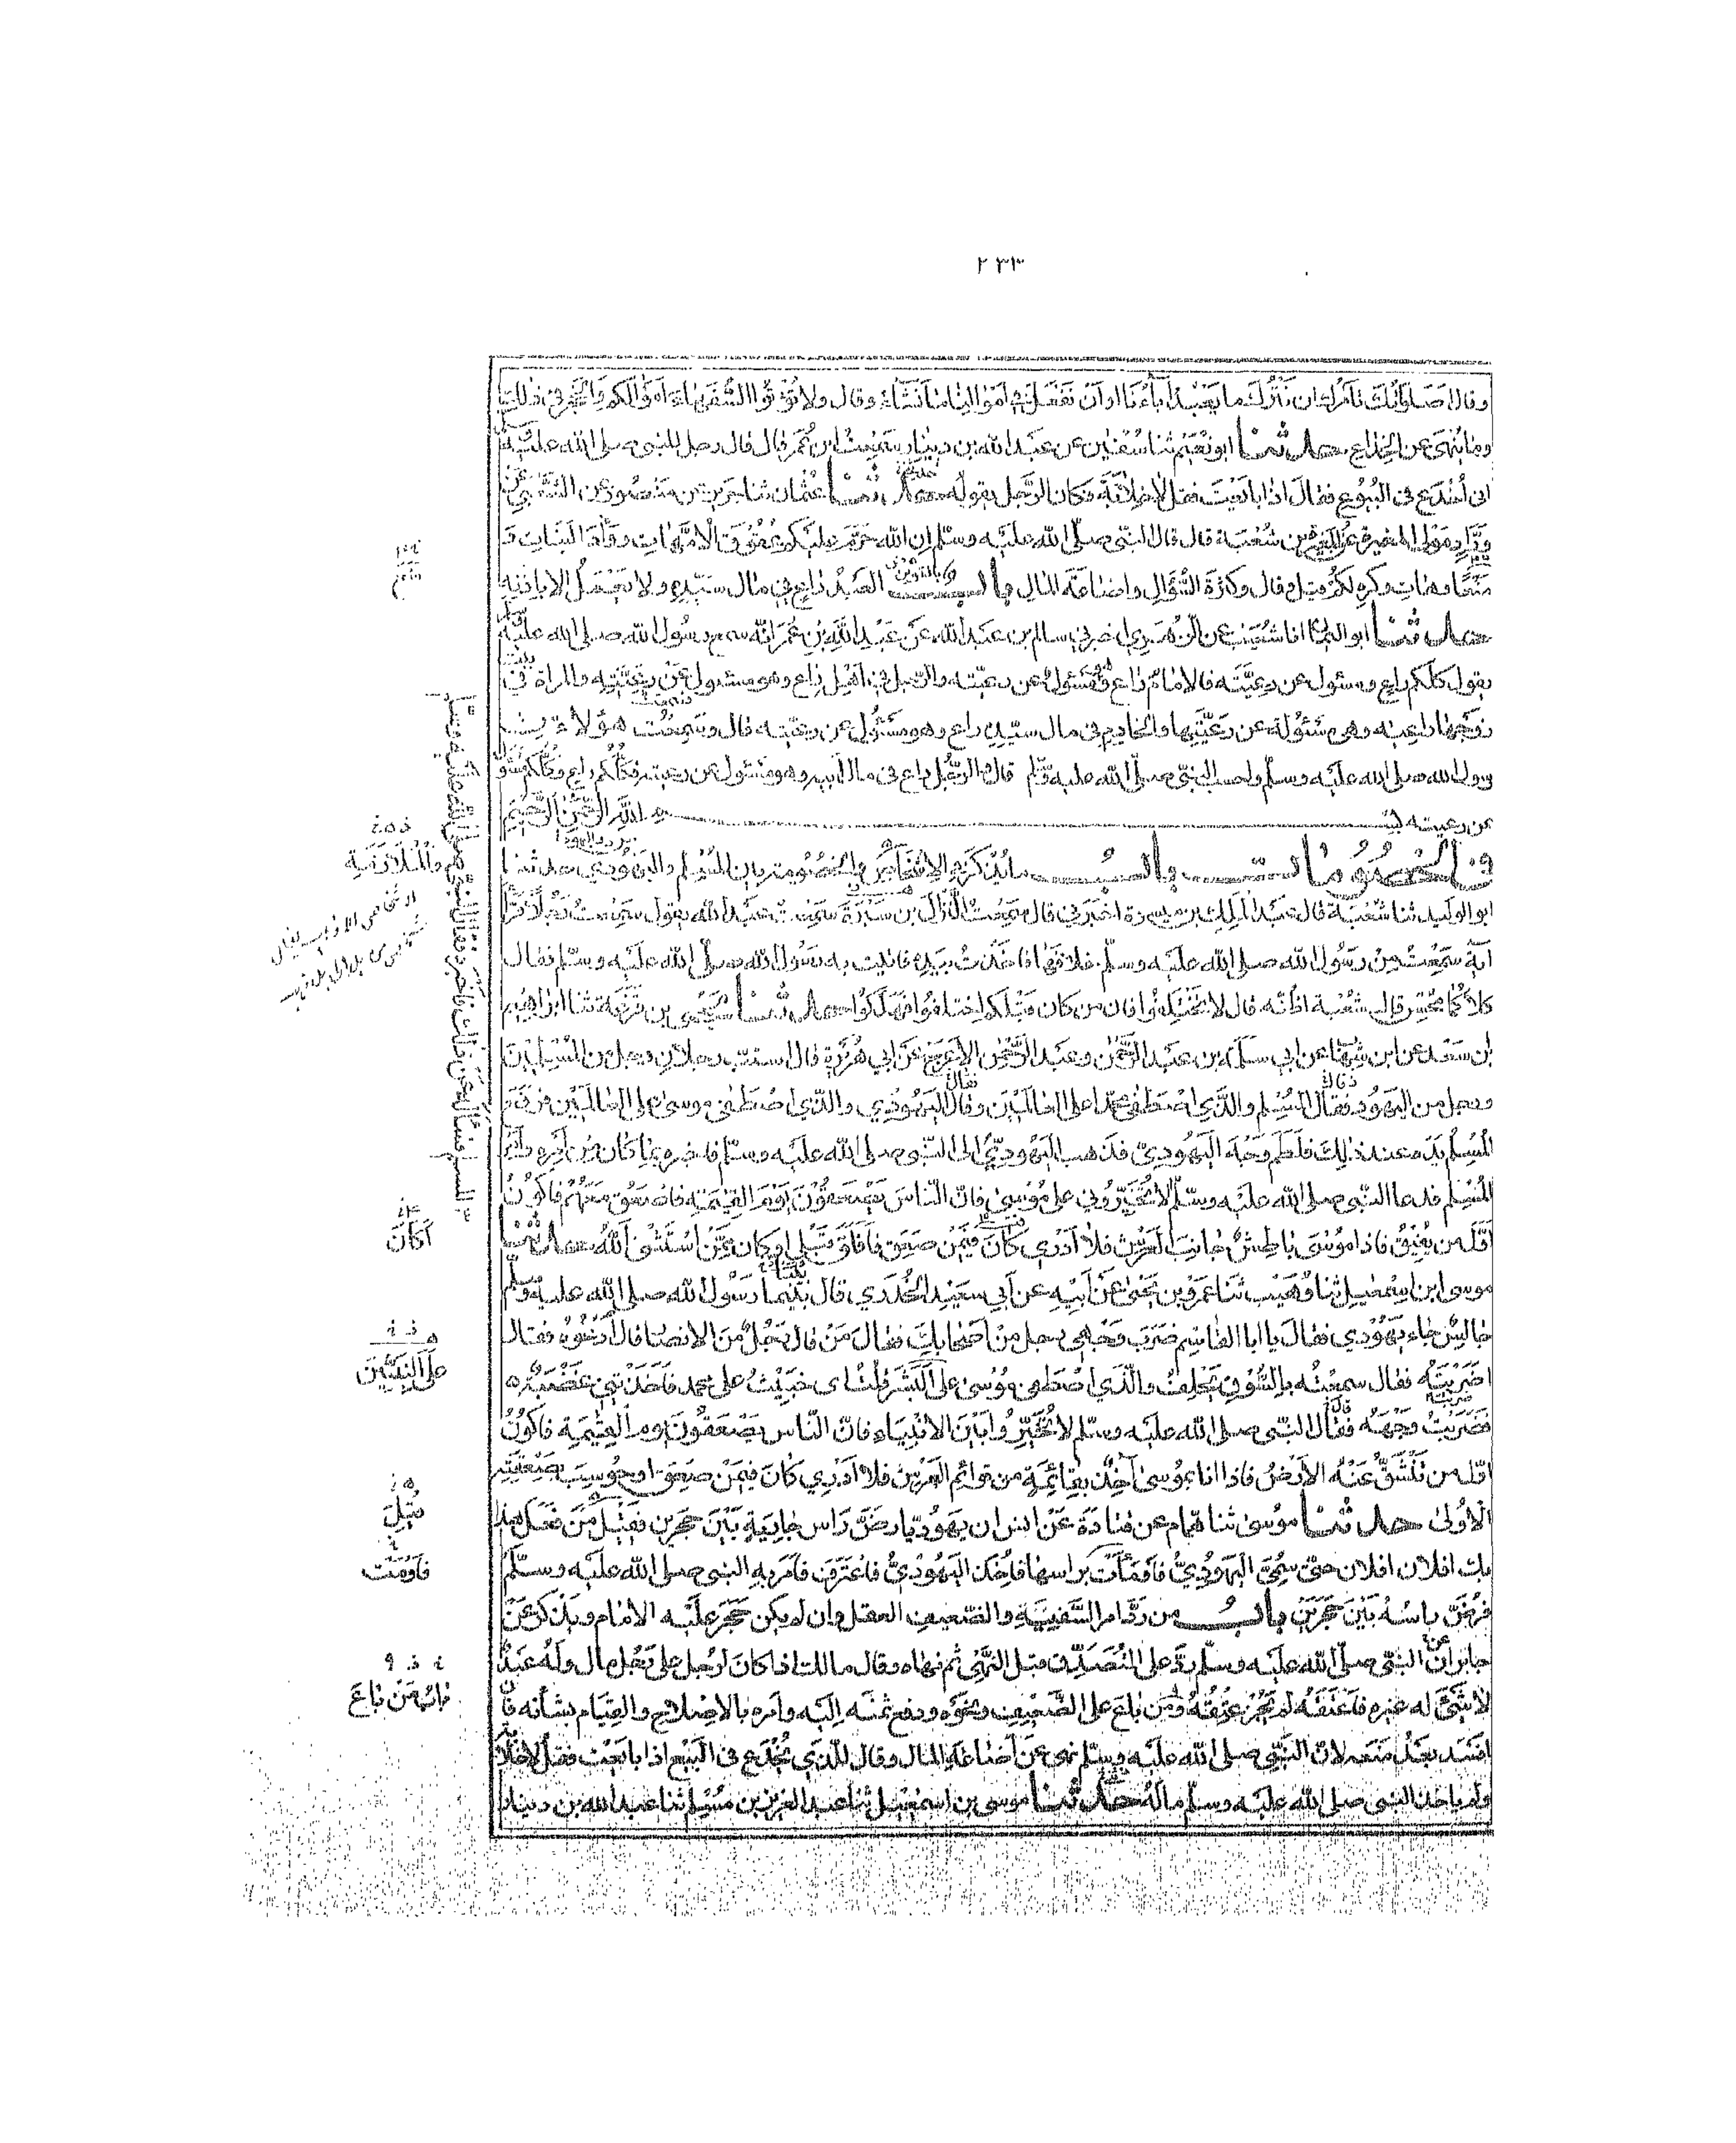 ٢٣٣
وقال اصلواتك تامرك ان نترك ما يعبد اباءنا او ان نفعل في اموالنا ما نشاء وقال ولا تؤتوا السفهاء اموالكم والحجر في ذلك
وما ينهى عن الخداع حدثنا ابو نعيم ثنا سفين عن عبد الله بن دينار سمعت ابن عمر قال قال رجل للنبي صلى الله عليه
اني اخدع في البيوع فقال اذا بايعت فقل لا خلابة فكان الرجل يقوله حدثنا عثمان ثنا جرير عن منصور عن الشعبي عن
وراد مولى المغيرة عن المغيرة بن شعبة قال قال النبي صلى الله عليه وسلم ان الله حرم عليكم عقوق الامهات ووأد البنات و
منعا وهات وكره لكم قيل وقال وكثرة السؤال واضاعة المال باب العبد راع في مال سيده ولا يعمل الا باذنه
حدثنا ابو اليمان انا شعيب عن الزهري اخبرني سالم بن عبد الله عن عبد الله بن عمر انه سمع رسول الله صلى الله عليه
يقول كلكم راع ومسئول عن رعيته فالامام راع ومسئول عن رعيته والرجل في اهله راع وهو مسئول عن رعيته والمراة في
زوجها راعية وهي مسئولة عن رعيتها والخادم في مال سيده راع وهو مسئول عن رعيته قال وسمعت هؤلاء من
رسول الله صلى الله عليه وسلم واحسب النبي صلى الله عليه وسلم قال والرجل راع في مال ابيه وهو مسئول عن رعيته فكلكم راع وكلكم مسئول
عن رعيته بسم الله الرحمن الرحيم
في الخصومات باب ما يذكر في الاشخاص والخصومة بين المسلم واليهودي حدثنا
ابو الوليد ثنا شعبة قال عبد الملك بن ميسرة اخبرني قال سمعت النزال بن سبرة سمعت عبد الله يقول سمعت رجلا قرا
اية سمعت من رسول الله صلى الله عليه وسلم خلافها فاخذت بيده فاتيت به رسول الله صلى الله عليه وسلم فقال
كلاكما محسن قال شعبة اظنه قال لا تختلفوا فان من كان قبلكم اختلفوا فهلكوا حدثنا يحيى بن قزعة ثنا ابراهيم
بن سعد عن ابن شهاب عن ابي سلمة بن عبد الرحمن وعبد الرحمن الاعرج عن ابي هريرة قال استب رجلان رجل من المسلمين
ورجل من اليهود فقال المسلم والذي اصطفى محمدا على العالمين وقال اليهودي والذي اصطفى موسى على العالمين فرفع
المسلم يده عند ذلك فلطم وجه اليهودي فذهب اليهودي الى النبي صلى الله عليه وسلم فاخبره بما كان من امره وامر
المسلم فدعا النبي صلى الله عليه وسلم لا تخيروني على موسى فان الناس يصعقون يوم القيمة فاصعق معهم فاكون
اول من يفيق فاذا موسى باطش جانب العرش فلا ادري كان فيمن صعق فافاق قبلي او كان ممن استثنى الله حدثنا
موسى ابن اسمعيل ثنا وهيب ثنا عمرو بن يحيى عن ابيه عن ابي سعيد الخدري قال بينما رسول الله صلى الله عليه وسلم
جالس جاء يهودي فقال يا ابا القاسم ضرب وجهي رجل من اصحابك فقال من قال رجل من الانصار قال ادعوه فقال
اضربته فقال سمعته بالسوق يحلف والذي اصطفى موسى على البشر قلت اي خبيث على محمد فاخذتني غضبة
فضربت وجهه فقال النبي صلى الله عليه وسلم لا تخيروا بين الانبياء فان الناس يصعقون يوم القيمة فاكون
اول من تنشق عنه الارض فاذا انا بموسى اخذ بقائمة من قوائم العرش فلا ادري كان فيمن صعق او حوسب بصعقته
الاولى حدثنا موسى ثنا همام عن قتادة عن انس ان يهوديا رض راس جارية بين حجرين فقيل من فعل هذا
بك افلان افلان حتى سمي اليهودي فاومأت براسها فاخذ اليهودي فاعترف فامر به النبي صلى الله عليه وسلم
فرض راسه بين حجرين باب من رد امر السفيه والضعيف العقل وان لم يكن حجر عليه الامام ويذكر عن
جابر ان النبي صلى الله عليه وسلم رد على المتصدق قبل النهي ثم نهاه وقال مالك اذا كان لرجل على رجل مال وله عبد
لا شيء له غيره فاعتقه لم يجز عتقه ومن باع على الضعيف ونحوه ودفع ثمنه اليه وامره بالاصلاح والقيام بشانه فان
افسد بعد منعه لان النبي صلى الله عليه وسلم نهى عن اضاعة المال وقال للذي يخدع في البيع اذا بايعت فقل لا خلابة
ولم ياخذ النبي صلى الله عليه وسلم ماله حدثنا موسى بن اسمعيل ثنا عبد العزيز بن مسلم ثنا عبد الله بن دينار
والملازمة
اكان
على النبيين
قيل
فاومت
باب من باع